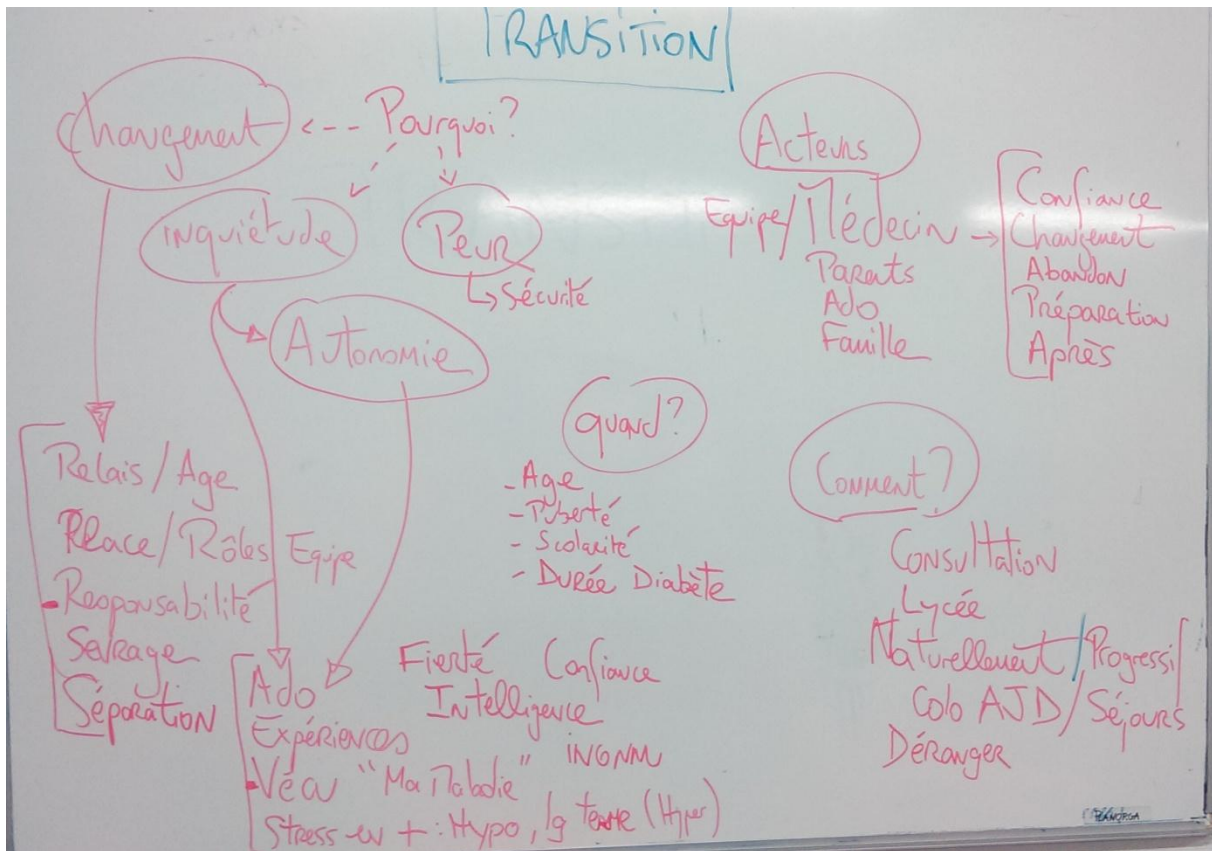 TRANSITION
Changement <-- Pourquoi?
inquiétude
Peur
↳ Sécurité
Autonomie
Relais / Age
Place / Rôles Equipe
- Responsabilité
Sevrage
Séparation
Ado
Expériences
- Vécu "Ma Maladie"
Stress en + : Hypo, lg terme (Hyper)
Fierté Confiance
Intelligence
quand?
- Age
- Puberté
- Scolarité
- Durée Diabète
Acteurs
Equipe / Médecin →
Parents
Ado
Famille
Confiance
Changement
Abandon
Préparation
Après
Comment?
Consultation
Lycée
Naturellement / Progressif
Colo AJD / Séjours
Déranger